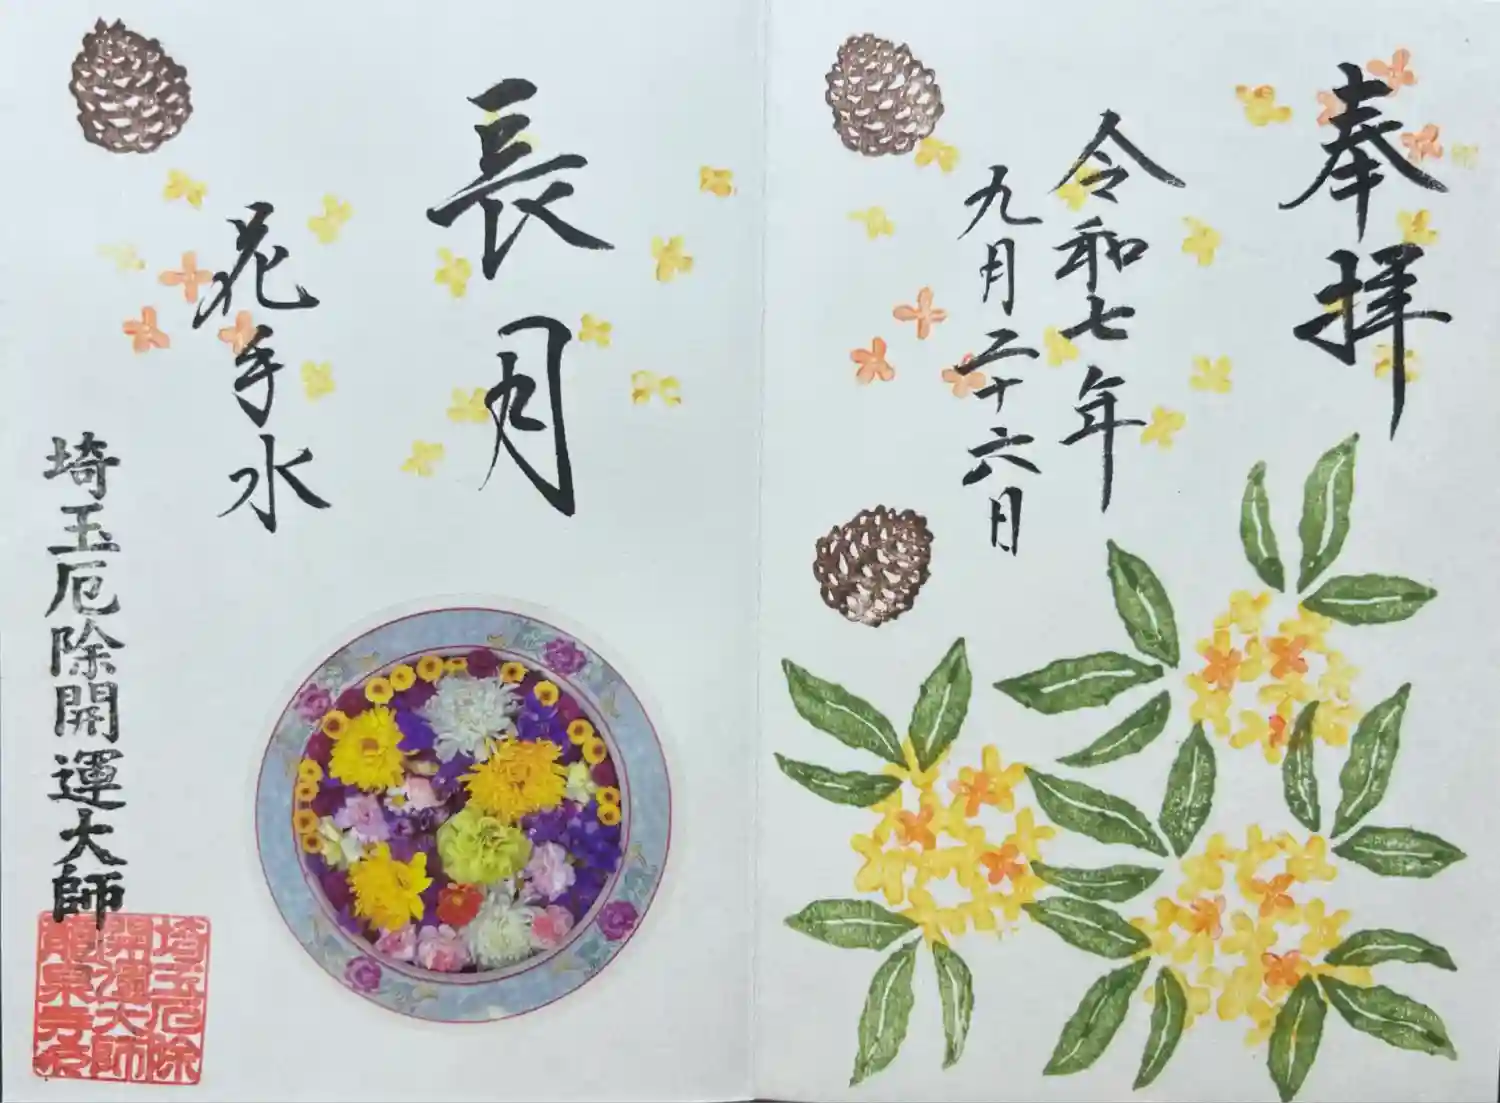 奉拝
令和七年
九月二十六日
長月
花手水
埼玉厄除開運大師
埼玉厄除
開運大師
龍泉寺